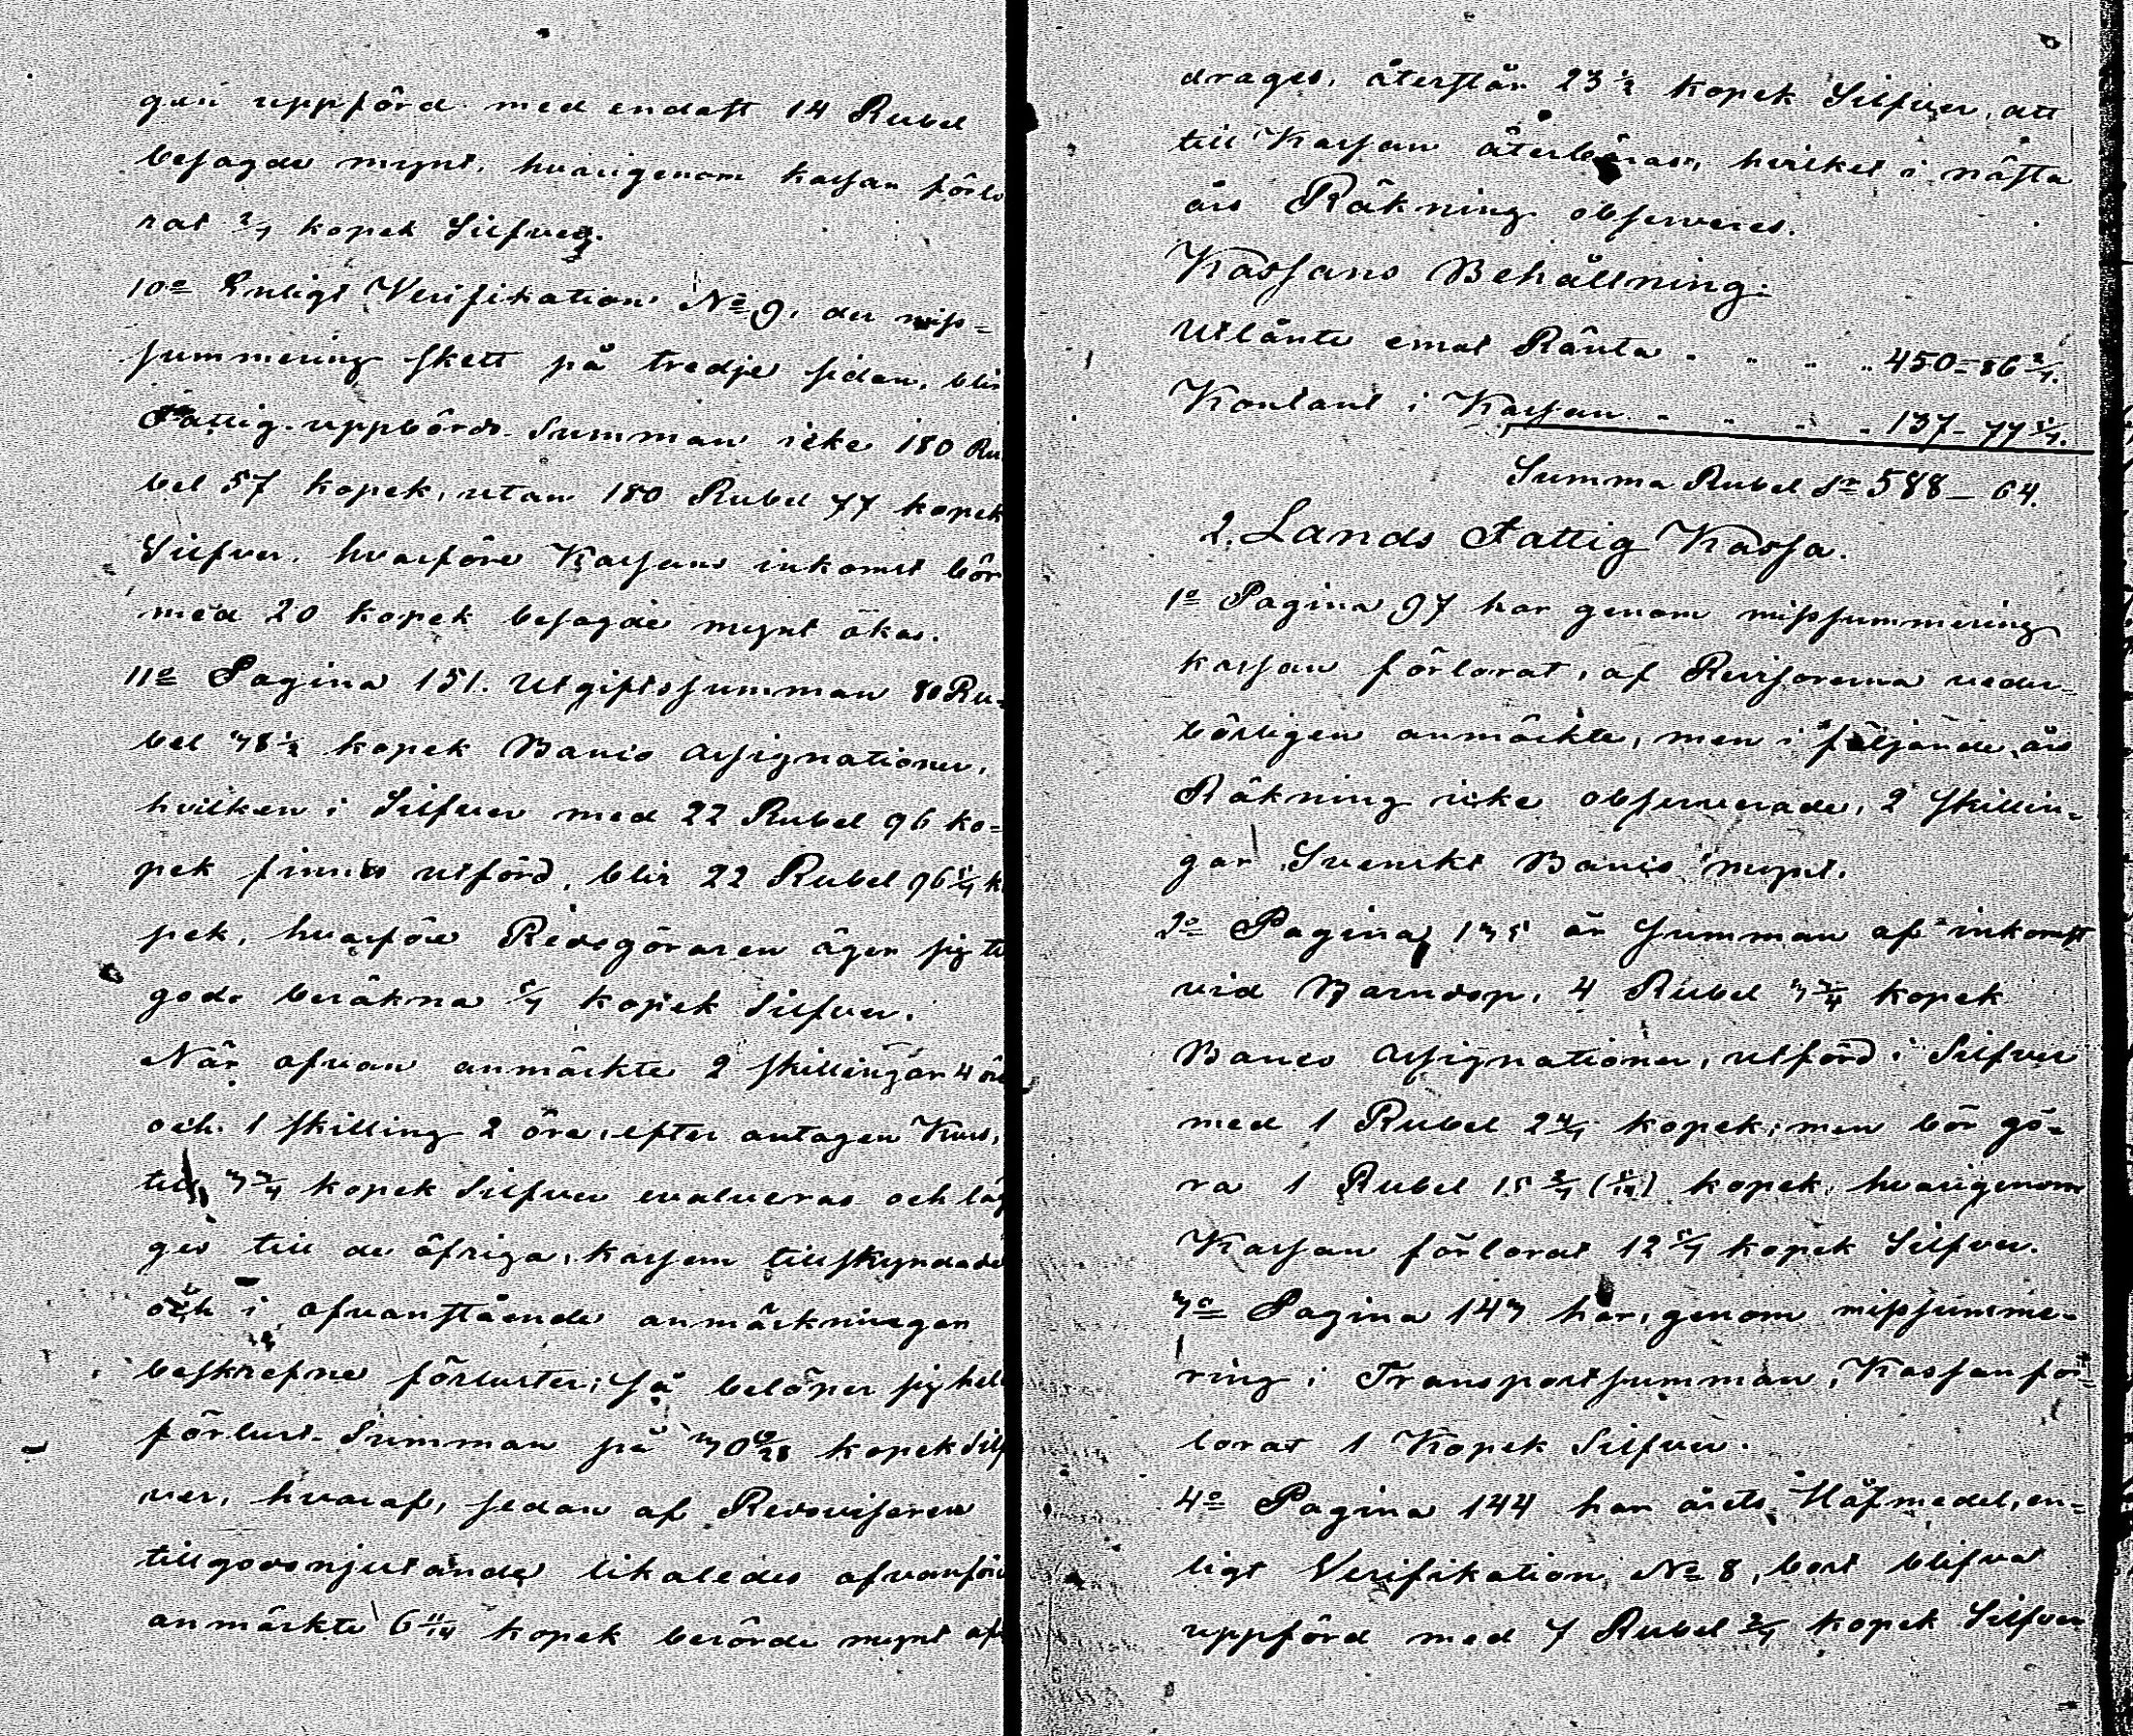 gan uppförd med endast 14 Rubel
besagde mynt, hvarigenom kassan förlo
rat 2/7 kopek Silfver.
10o Enligt Verifikation No 9, der miss-
summering skett på tredje sidan, blir
Fattig-uppbörds-Summan icke 180 Ru
bel 57 kopek, utan 180 Rubel 77 kopek
Silfver, hvarföre Kassans inkomst bör
med 20 kopek besagde mynt ökas.
11o Pagina 151. Utgiftssumman 80 Ru-
bel 38 1/2 kopek Banco Assignationer,
hvilken i Silfver med 22 Rubel 96 ko-
pek finnes utförd, blir 22 Rubel 96 5/7 k
pek, hvarföre Redogöraren äger sig til
godo beräkna 5/7 kopek Silfver.
När ofvan anmärkte 2 skillingar 4 öre
och 1 skilling 2 öre, efter antagen Kurs,
till 3 3/4 kopek Silfver evalveras och läg
ges till de öfriga, kassan tillskyndade
och i ofvanstående anmärkningar
beskrefne förluster; så belöper sig hela
förlust-Summan på 30 8/28 kopek Silf
ver, hvaraf, sedan af Redovisaren
tillgodonjutande likaledes ofvanföre
anmärkte 6 11/14 kopek berörde mynt af
drages, återstår 23 1/2 kopek Silfver, att
till Kassan återbäras, hvilket i nästa
års Räkning observeres.
Kassans Behållning:
Utlånte emot Ränta . . . . 450 - 86 2/7.
Kontant i Kassan . . . . 137 - 77 5/7.
Summa Rubel Sr 588 - 64.
2. Lands Fattig Kassa.
1o Pagina 97 har genom missummering
kassan förlorat, af Revisorerna veder-
börligen anmärkte, men i följande års
Räkning icke observerade, 2 skillin-
gar Svenskt Banco mynt.
2o Pagina 135 är Summan af inkomst
vid Barndop, 4 Rubel 3 3/4 kopek
Banco Assignationer, utförd i Silfver
med 1 Rubel 2 4/7 kopek; men bör gö-
ra 1 Rubel 15 2/7 (5/14) kopek, hvarigenom
Kassan förlorat 12 5/7 kopek Silfver.
3o Pagina 143 har, genom missumme-
ring i Transportsumman, Kassan för-
lorat 1 Kopek Silfver.
4o Pagina 144 har årets Håfmedel, en-
ligt Verifikation No 8, bort blifva
uppförd med 7 Rubel 2/7 kopek Silfver